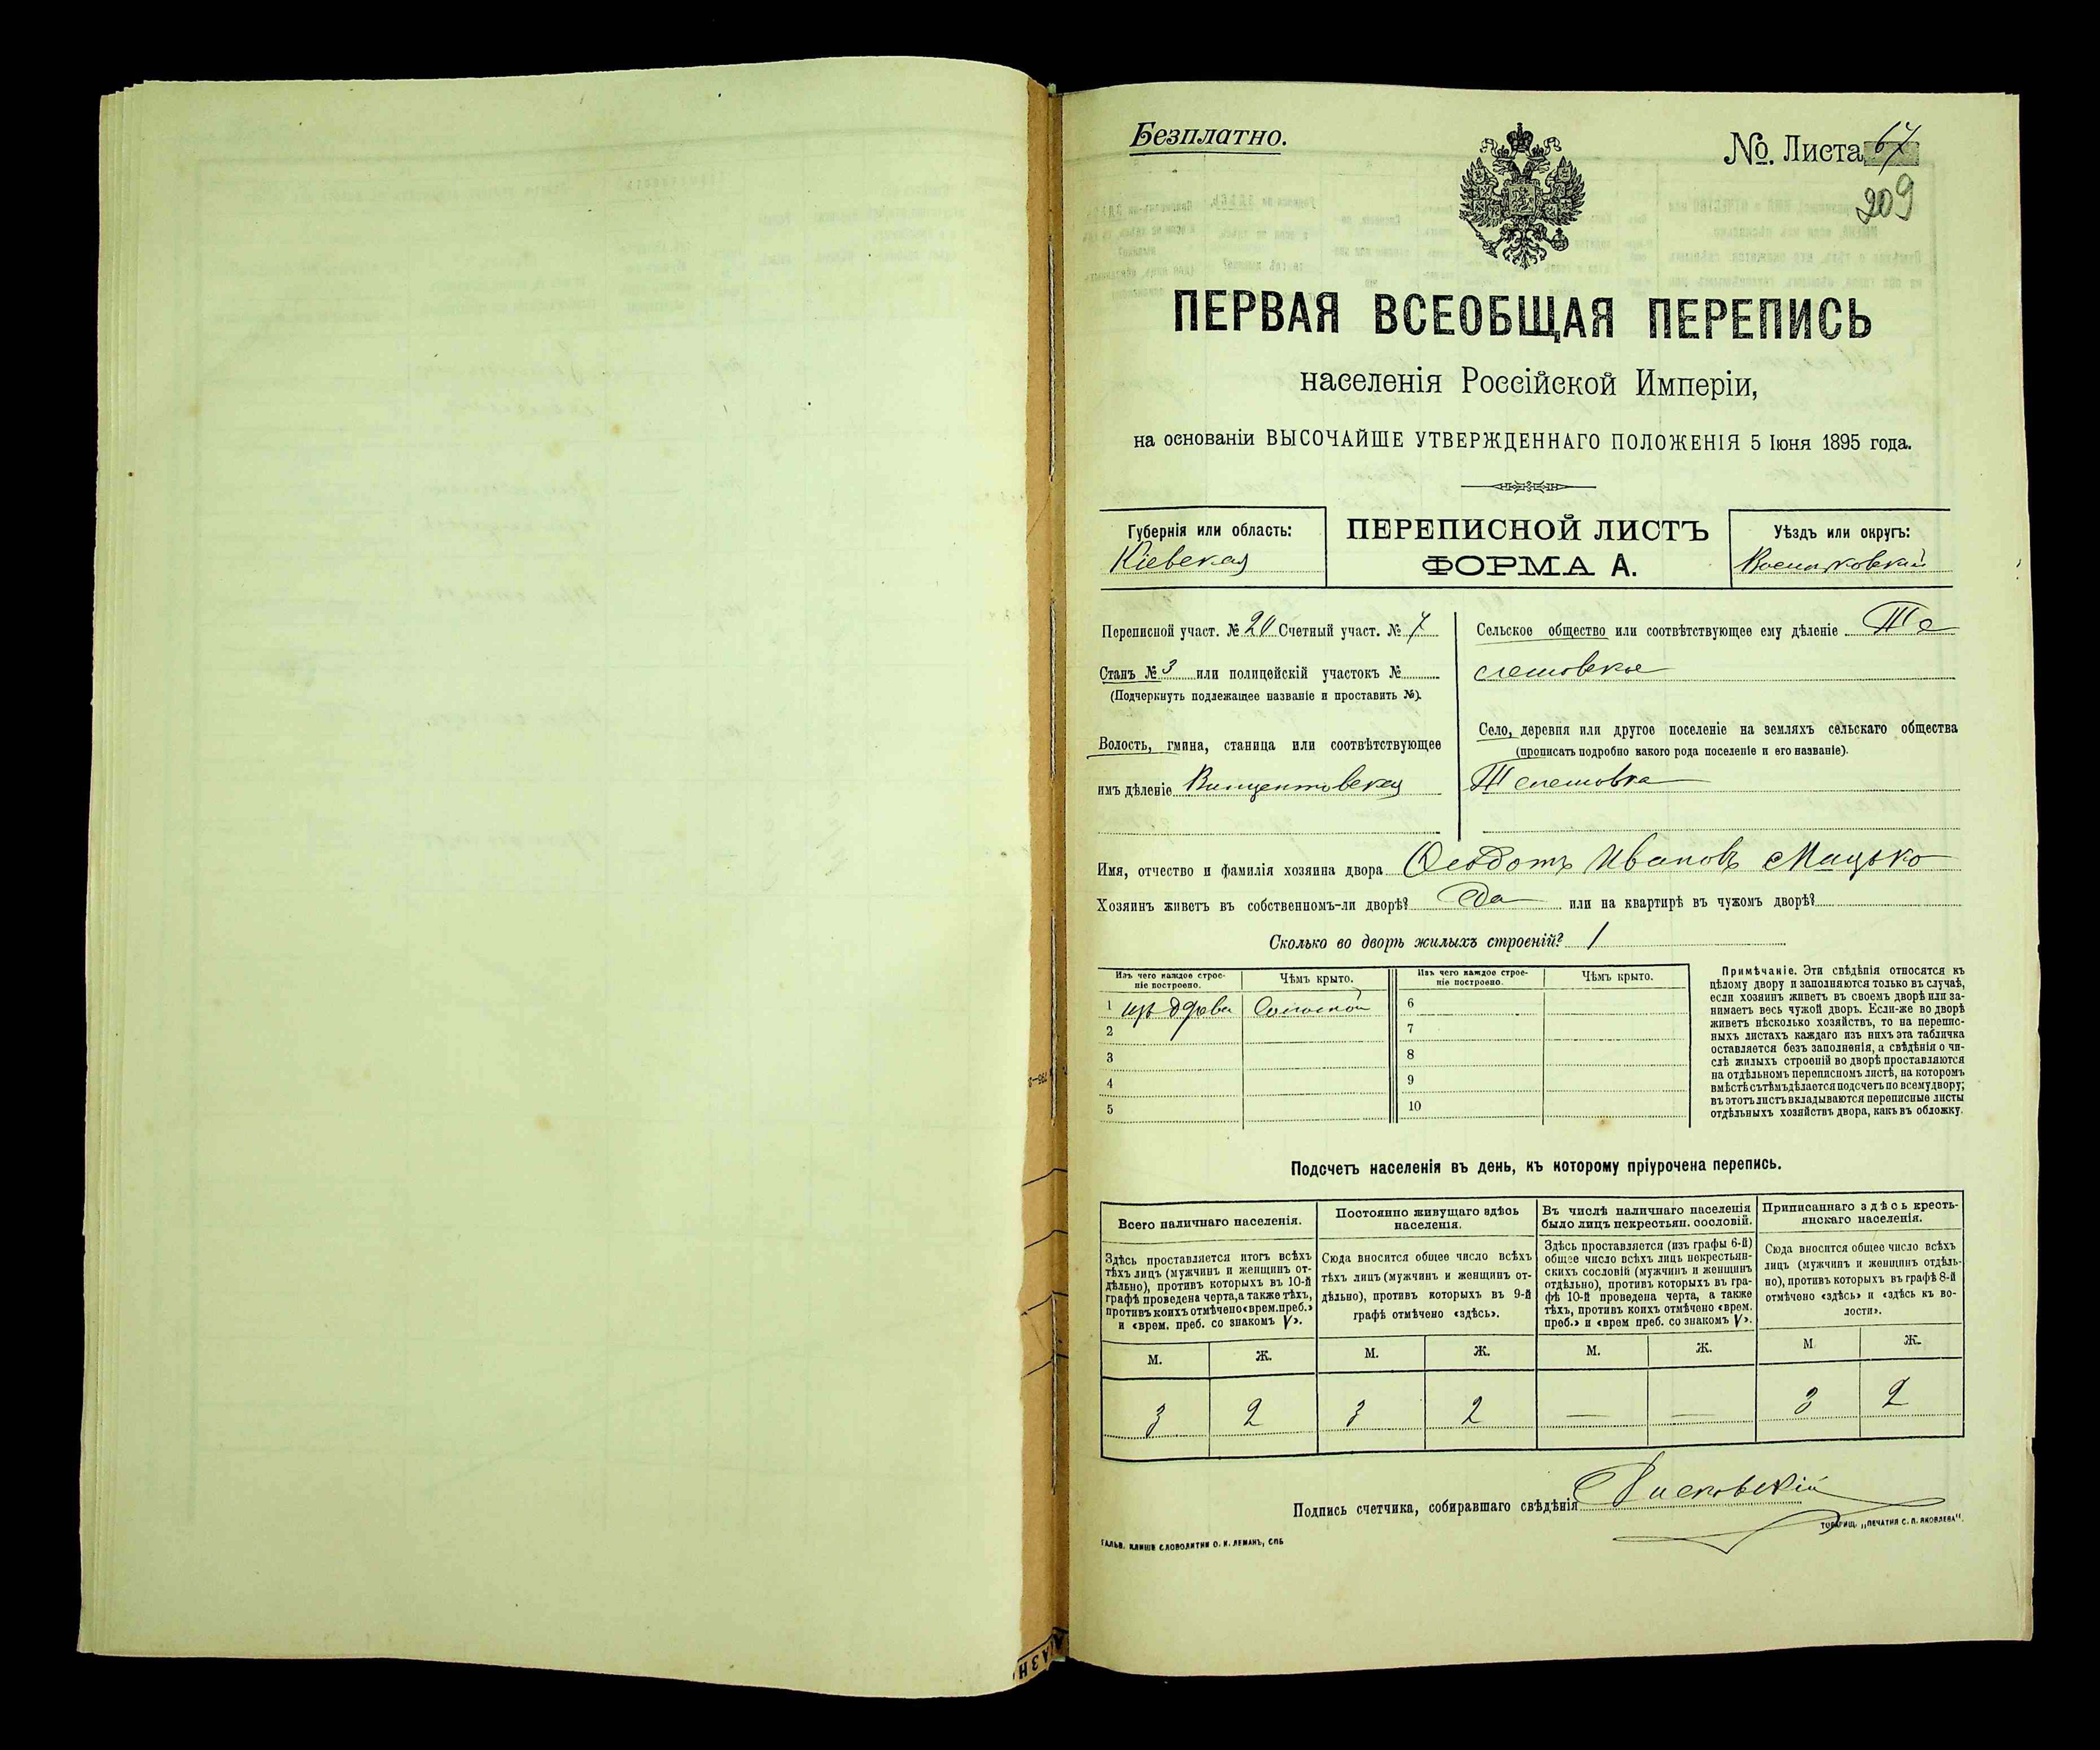 Безплатно.
№. Листа 67
209
ПЕРВАЯ ВСЕОБЩАЯ ПЕРЕПИСЬ
населенія Россійской Имперіи,
на основаніи ВЫСОЧАЙШЕ УТВЕРЖДЕННАГО ПОЛОЖЕНІЯ 5 Іюня 1895 года.
Губернія или область:
Кіевская
ПЕРЕПИСНОЙ ЛИСТЪ
ФОРМА А.
Уѣздъ или округъ:
Васильковскій
Переписной участ. № 20 Счетный участ. № 7
Станъ № 3 или полицейскій участокъ №
(Подчеркнуть подлежащее названіе и проставить №).
Волость, гмина, станица или соотвѣтствующее
имъ дѣленіе Винцентовская
Сельское общество или соотвѣтствующее ему дѣленіе Те
лешовское
Село, деревня или другое поселеніе на земляхъ сельскаго общества
(прописать подробно какого рода поселеніе и его названіе).
Телешовка
Имя, отчество и фамилія хозяина двора Ѳеодотъ Ивановъ Мацько
Хозяинъ живетъ въ собственномъ-ли дворѣ? Да или на квартирѣ въ чужомъ дворѣ?
Сколько во дворѣ жилыхъ строеній? 1
Изъ чего каждое строе-
ніе построено.
Чѣмъ крыто.
1 изъ дерева Соломой
2
3
4
5
Изъ чего каждое строе-
ніе построено.
Чѣмъ крыто.
6
7
8
9
10
Примѣчаніе. Эти свѣдѣнія относятся къ
цѣлому двору и заполняются только въ случаѣ,
если хозяинъ живетъ въ своемъ дворѣ или за-
нимаетъ весь чужой дворъ. Если-же во дворѣ
живетъ нѣсколько хозяйствъ, то на перепис-
ныхъ листахъ каждаго изъ нихъ эта табличка
оставляется безъ заполненія, а свѣдѣнія о чи-
слѣ жилыхъ строеній во дворѣ проставляются
на отдѣльномъ переписномъ листѣ, на которомъ
вмѣстѣ съ тѣмъ дѣлается подсчетъ по всему двору;
въ этотъ листъ вкладываются переписные листы
отдѣльныхъ хозяйствъ двора, какъ въ обложку.
Подсчетъ населенія въ день, къ которому пріурочена перепись.
Всего наличнаго населенія.
Здѣсь проставляется итогъ всѣхъ
тѣхъ лицъ (мужчинъ и женщинъ от-
дѣльно), противъ которыхъ въ 10-й
графѣ проведена черта, а также тѣхъ,
противъ коихъ отмѣчено «врем. преб.»
и «врем. преб. со знакомъ V».
М. Ж.
3 2
Постоянно живущаго здѣсь
населенія.
Сюда вносится общее число всѣхъ
тѣхъ лицъ (мужчинъ и женщинъ от-
дѣльно), противъ которыхъ въ 9-й
графѣ отмѣчено «здѣсь».
М. Ж.
3 2
Въ числѣ наличнаго населенія
было лицъ некрестьян. сословій.
Здѣсь проставляется (изъ графы 6-й)
общее число всѣхъ лицъ некрестьян-
скихъ сословій (мужчинъ и женщинъ
отдѣльно), противъ которыхъ въ гра-
фѣ 10-й проведена черта, а также
тѣхъ, противъ коихъ отмѣчено «врем.
преб.» и «врем преб. со знакомъ V».
М. Ж.
— —
Приписаннаго здѣсь кресть-
янскаго населенія.
Сюда вносится общее число всѣхъ
лицъ (мужчинъ и женщинъ отдѣль-
но), противъ которыхъ въ графѣ 8-й
отмѣчено «здѣсь» и «здѣсь къ во-
лости».
М Ж.
3 2
Подпись счетчика, собиравшаго свѣдѣнія
ГАЛЬВ. КЛИШЕ СЛОВОЛИТНИ О. И. ЛЕМАНЪ, СПБ
ТОВАРИЩ. „ПЕЧАТНЯ С. П. ЯКОВЛЕВА".